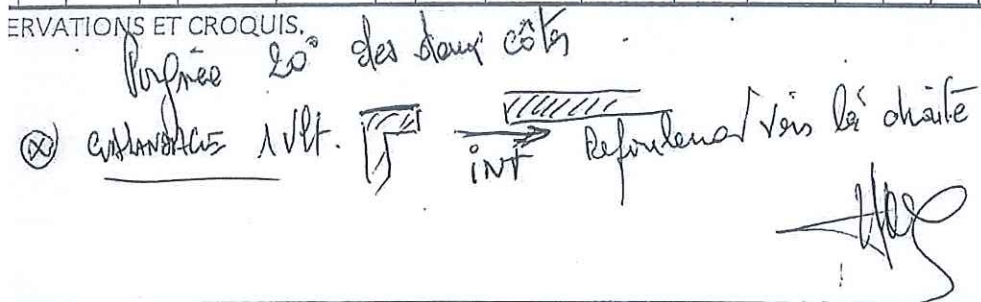 ERVATIONS ET CROQUIS.
Poignée 20° des deux côtés.
GALANDAGE 1 Vlt. INT Refoulement vers la droite